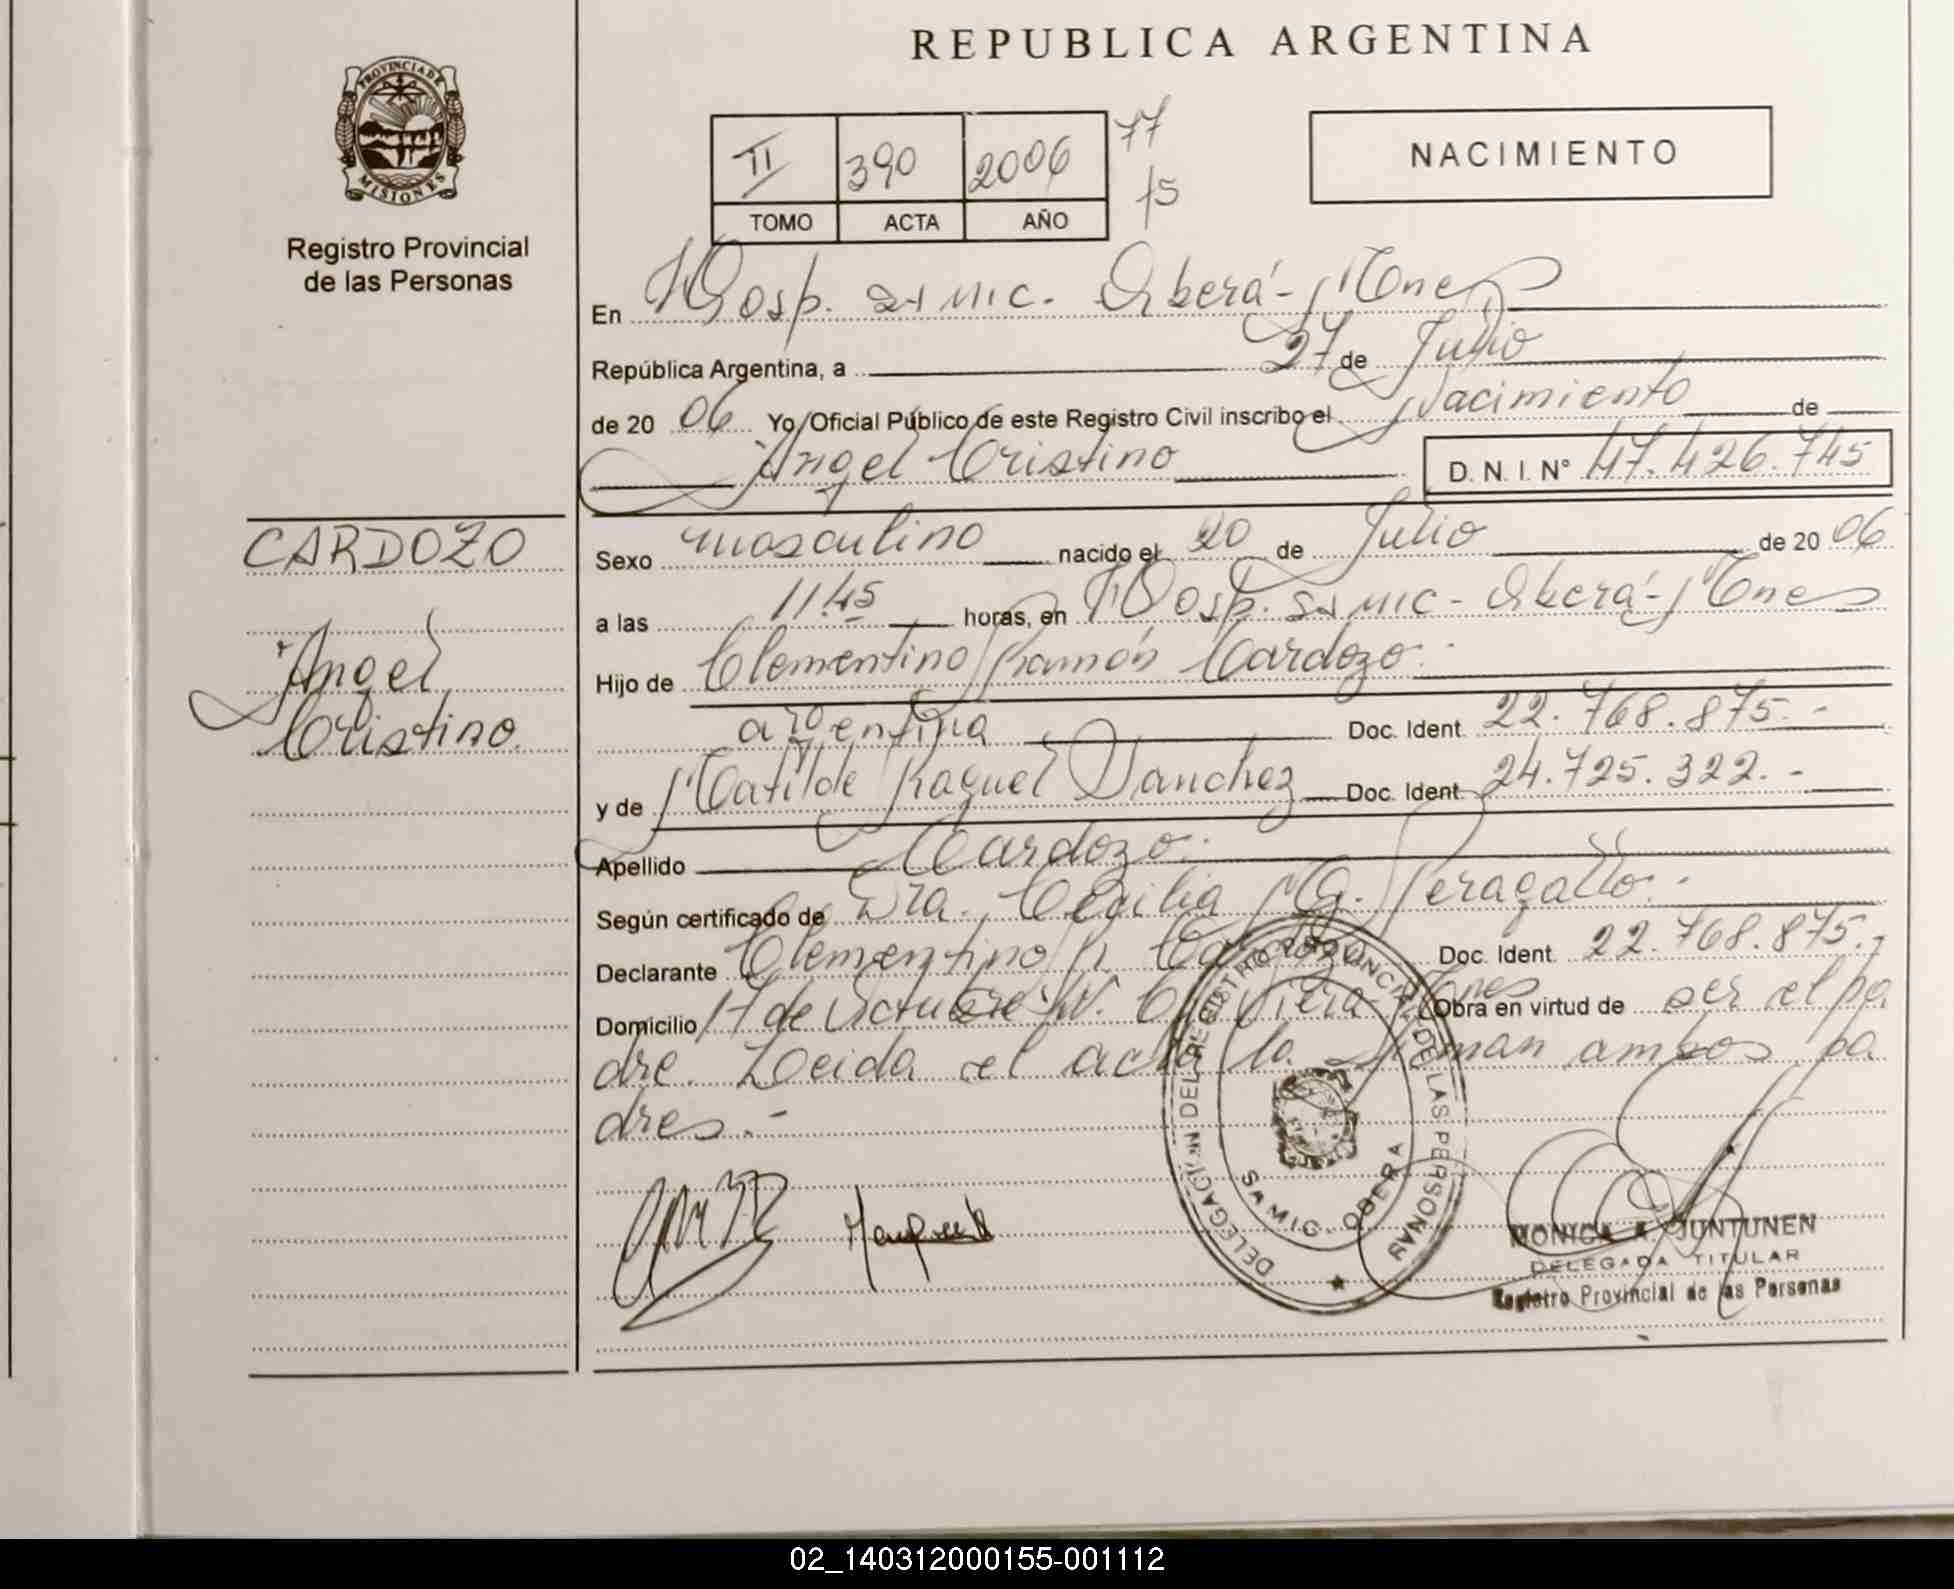 REPUBLICA ARGENTINA
PROVINCIA DE
MISIONES
Registro Provincial
de las Personas
II 390 2006 77
TOMO ACTA AÑO 15
NACIMIENTO
En Hosp. SAMIC. Oberá - Mnes
República Argentina, a 27 de Julio
de 20 06 Yo, Oficial Público de este Registro Civil inscribo el Nacimiento de
Angel Cristino D. N. I. Nº 47.426.745
CARDOZO
Angel
Cristino.
Sexo masculino nacido el 20 de Julio de 20 06
a las 11.45 horas, en Hosp. SAMIC - Oberá - Mnes
Hijo de Clementino Ramón Cardozo.-
argentina Doc. Ident. 22.768.875.-
y de Matilde Raquel Sanchez Doc. Ident. 24.725.322.-
Apellido Cardozo.
Según certificado de Dra. Cecilia M. G. Peragallo.-
Declarante Clementino R. Cardozo Doc. Ident. 22.768.875.-
Domicilio 17 de Octubre Viera - Mnes Obra en virtud de ser el pa
dre. Leida el acta la firman ambos pa
dres.-
DELEGACION DEL REGISTRO PROVINCIAL DE LAS PERSONAS
SAMIC. OBERA
MONICA A. JUNTUNEN
DELEGADA TITULAR
Registro Provincial de las Personas
02_140312000155-001112